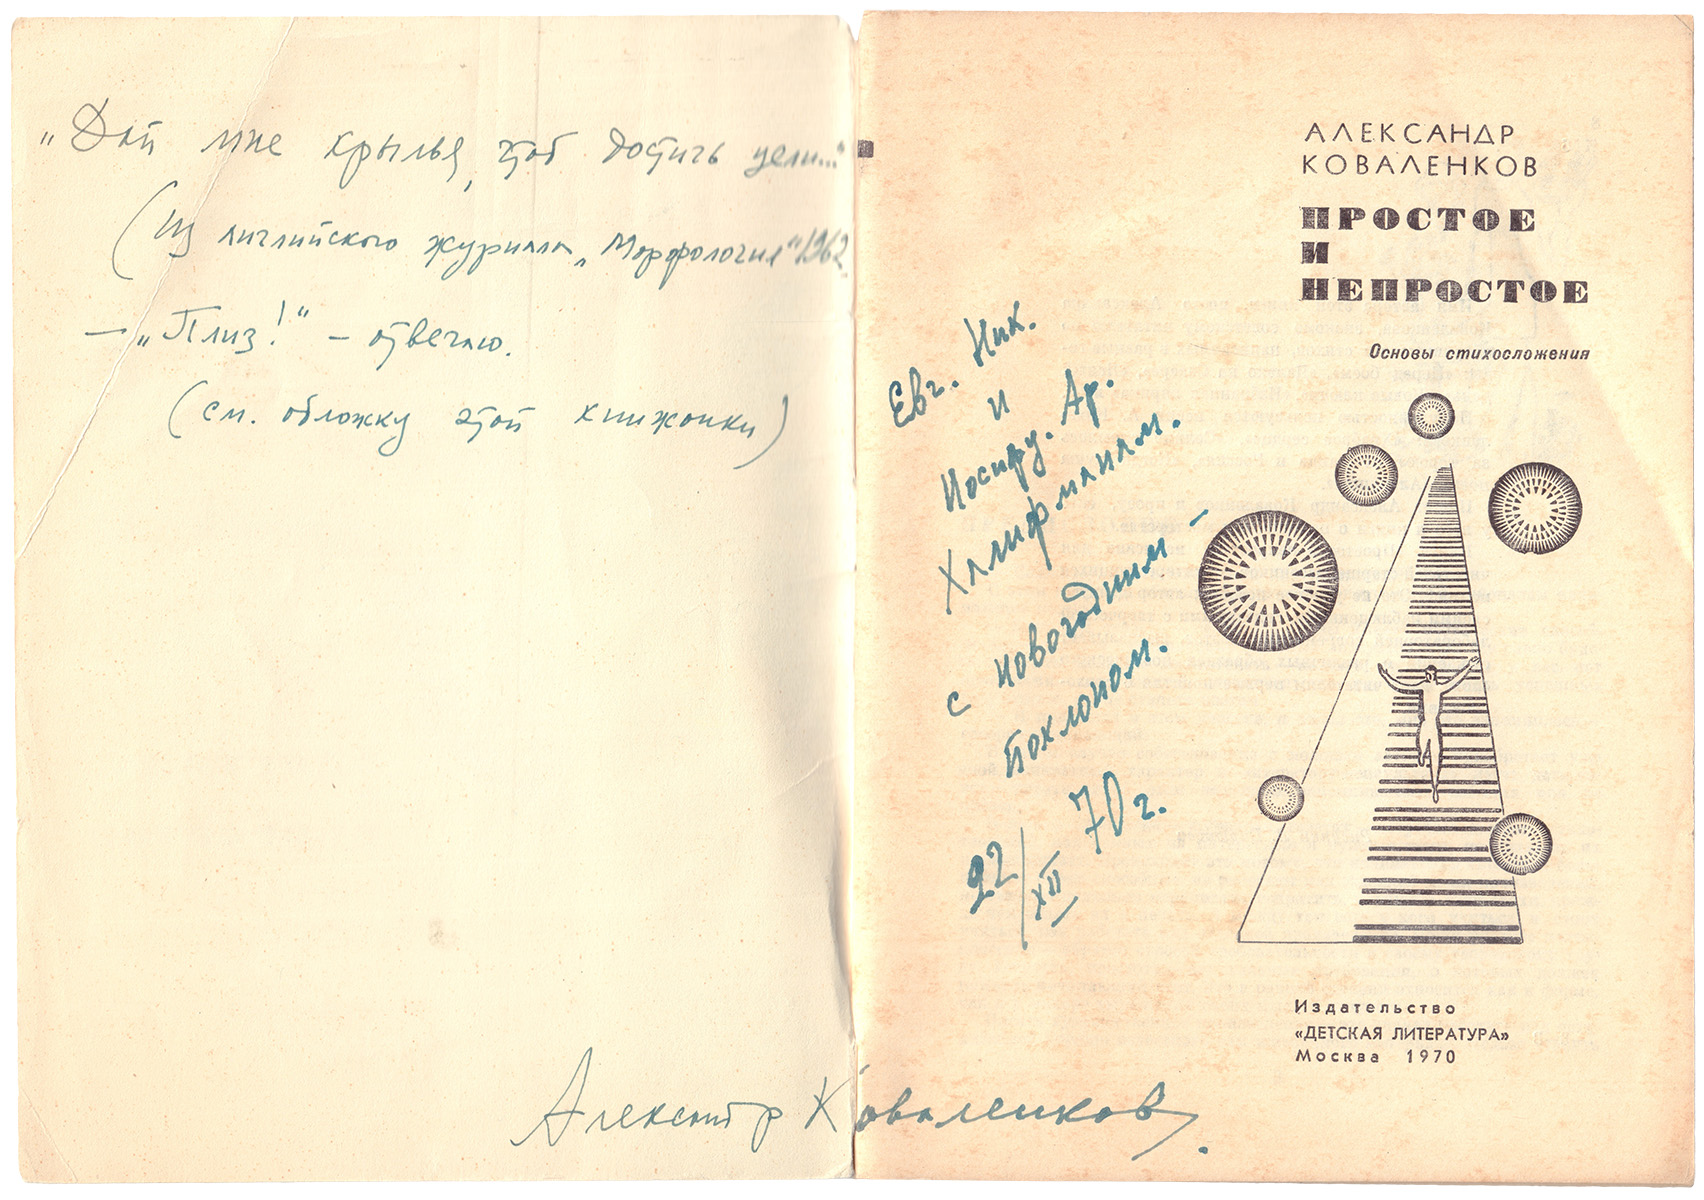 „Дай мне крылья, чтоб достичь цели..."
(Из английского журнала „Морфология" 1962
— „Плиз!" — отвечаю.
(см. обложку этой книжонки)
Александр Коваленков.
Евг. Ник.
и
Иосифу. Ар.
Халифманам.
с новогодним —
поклоном.
22/XII 70 г.
АЛЕКСАНДР
КОВАЛЕНКОВ
ПРОСТОЕ
И
НЕПРОСТОЕ
Основы стихосложения
Издательство
«ДЕТСКАЯ ЛИТЕРАТУРА»
Москва 1970